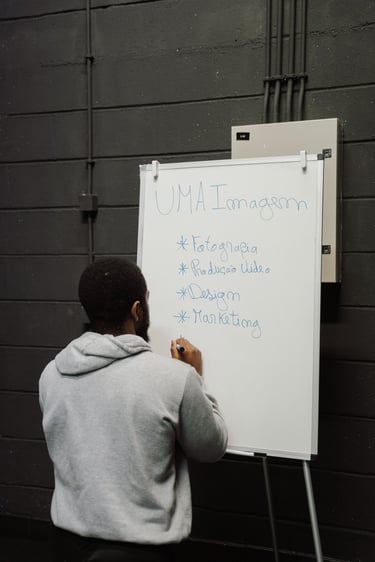 UMA Imagem
* Fotografia
* Produção Video
* Design
* Marketing